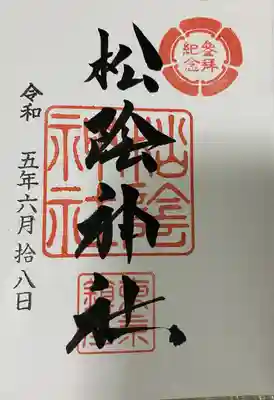 參拜
紀念
松陰神社
松陰
神社
令和 五年六月拾八日